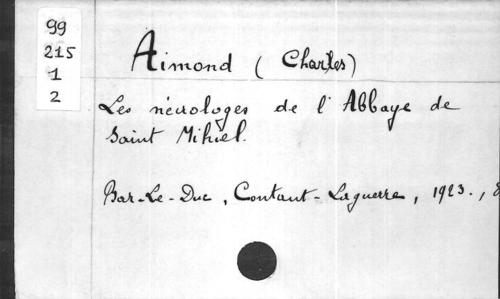 99
215
1
2
Aimond (Charles)
Les nécrologes de l'Abbaye de
Saint Mihiel.
Bar-Le-Duc, Contant-Laguerre, 1923.,